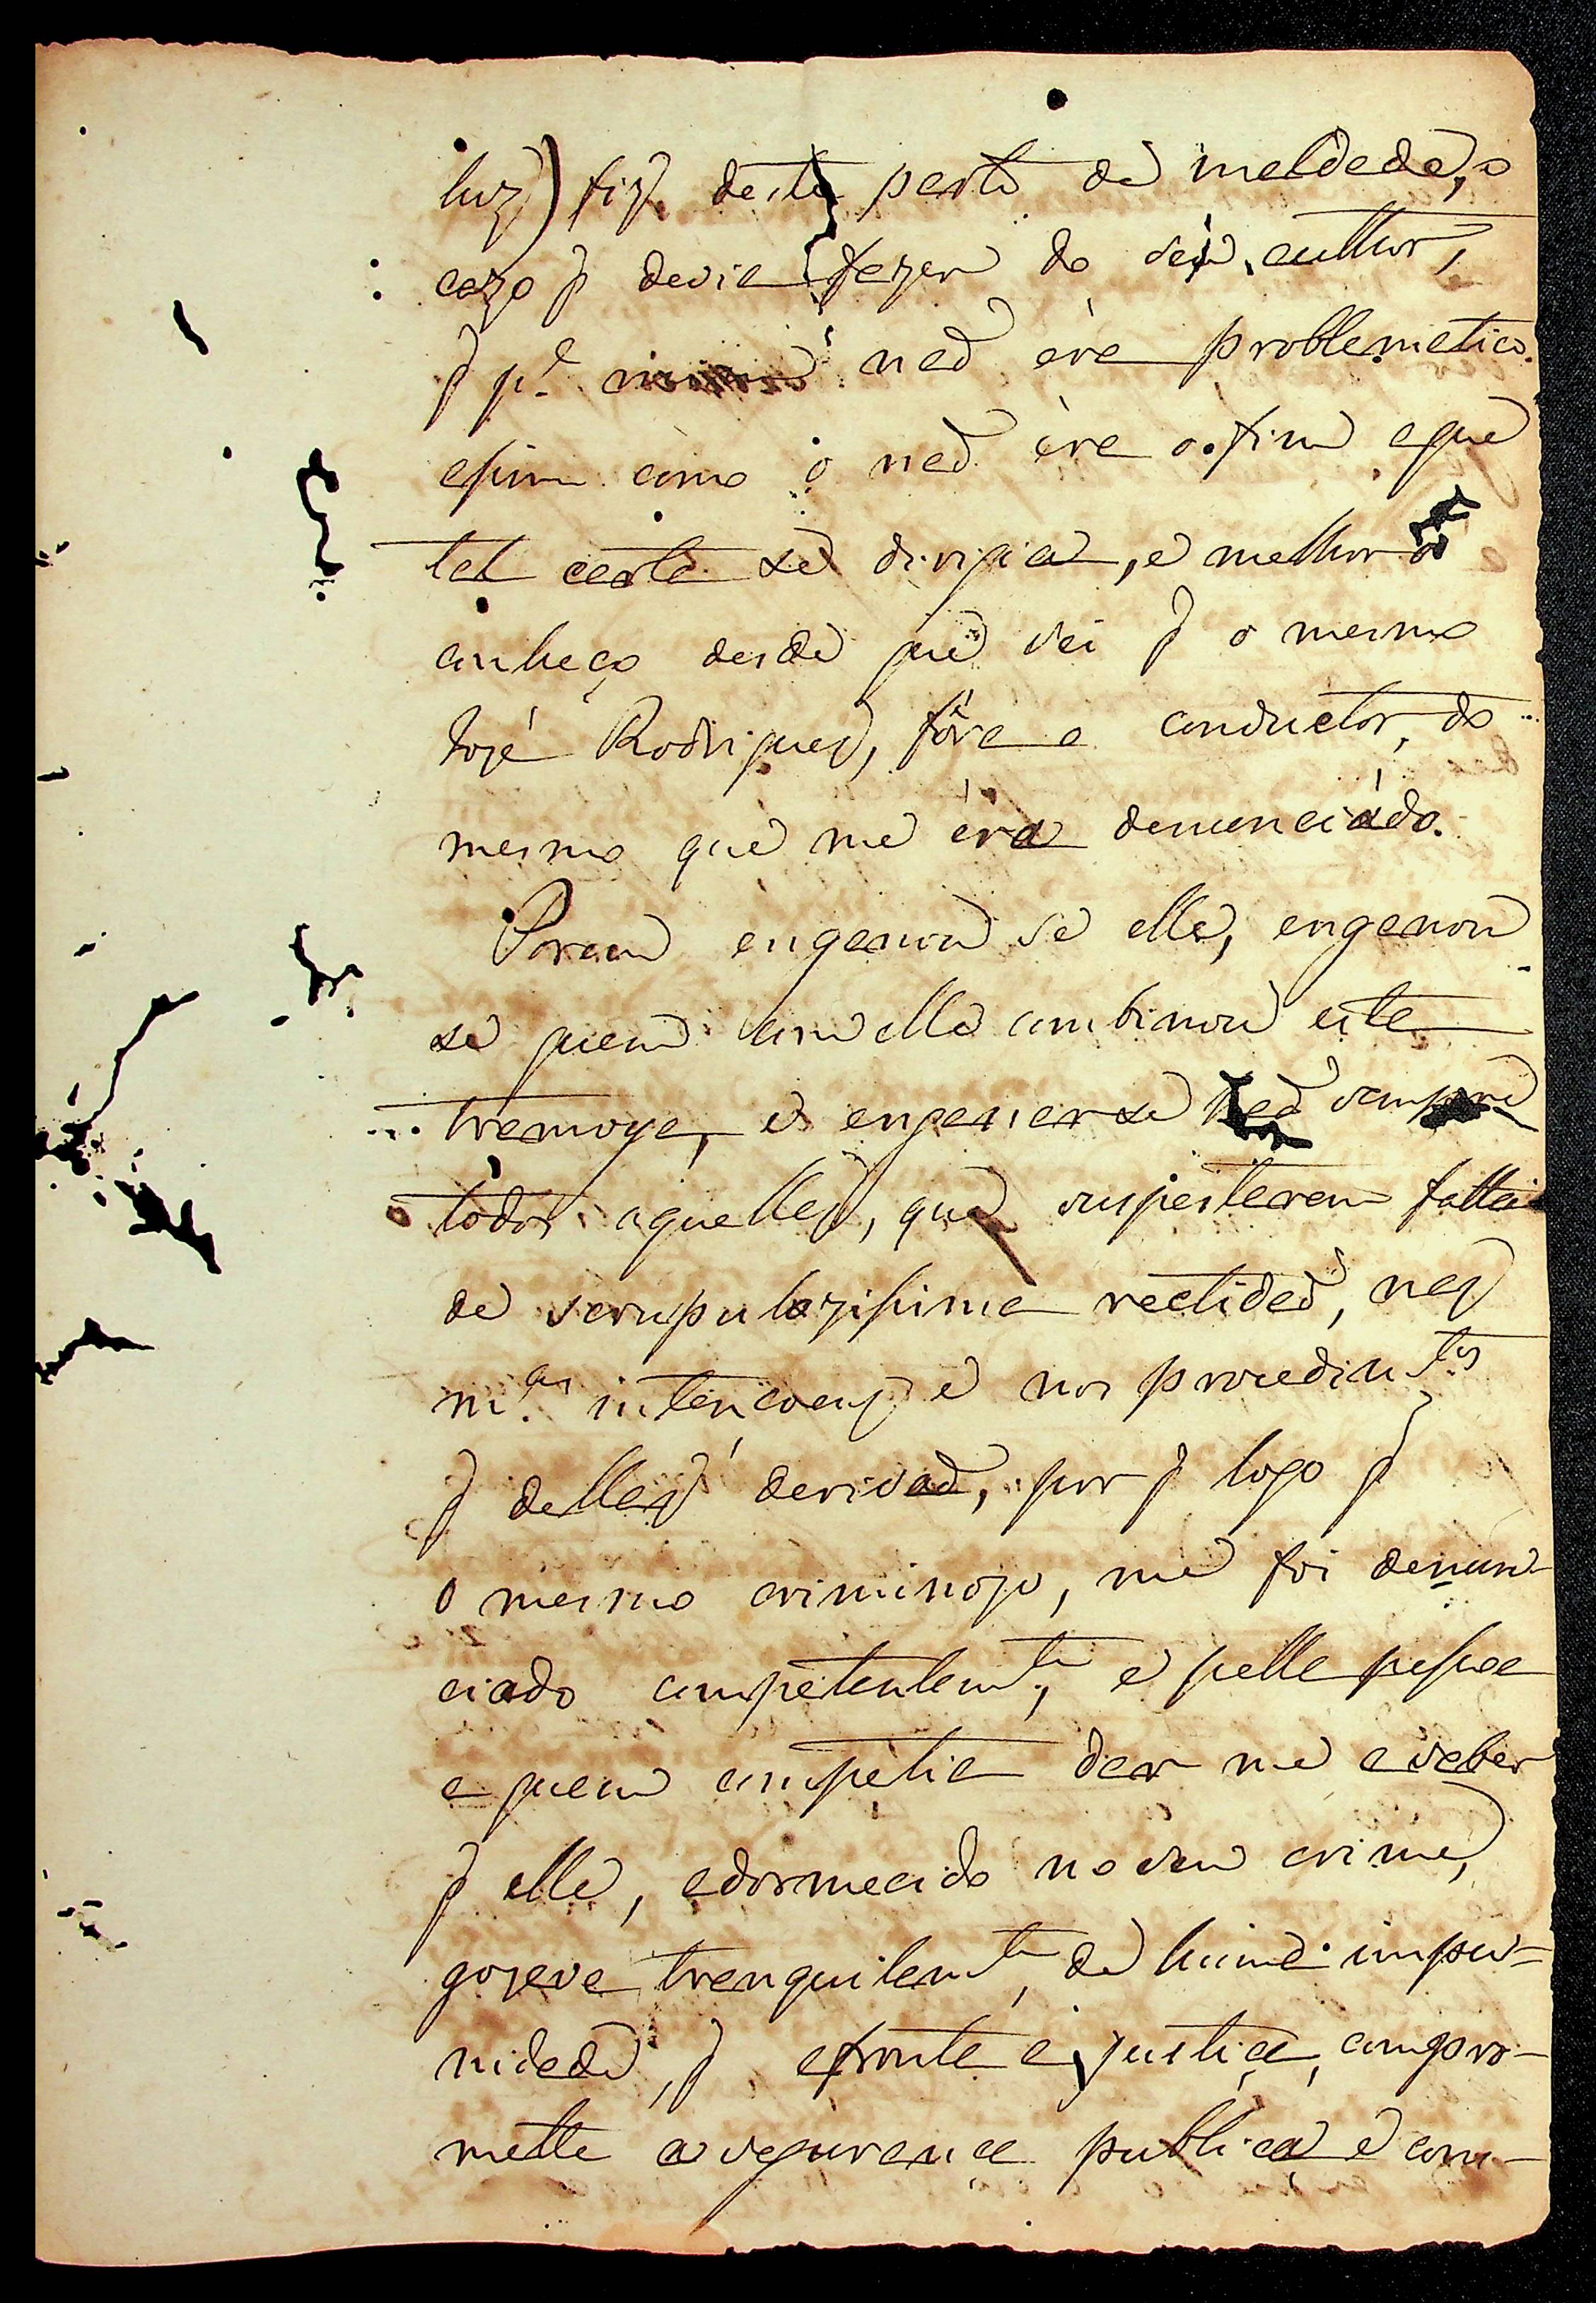 luz) fiz desta parte de maldade, o
cazo q̃ devia fazer do seu author,
q̃ p.ª mim naõ éra problematico.
assim como o naõ éra o fim aque
tal carta se dirigia, e melhor o
conheço desde que sei q̃ o mesmo
Jozé Rodrigues, fôra o conductor, do
mesmo que me éra denunciádo.
Porem enganou se elle, enganou
se quem com elle combinou esta
tramoya, e enganarse haõ sempre
todos aquelles, que suspeitarem falta
de scrupulozissima rectidaõ, nas
m.as intençoens e nos procedim.tos
q̃ dellas derivaõ, por q̃ logo q̃
o mesmo criminozo, me foi denun-
ciado competentem.te, e pella pessoa
a quem competia dar me a saber
q̃ elle, adormecido no seu crime,
gozava tranquilam.te de huma impu=
nidade, q̃ afronta a justiça, compro-
mette a segurança publica e com-